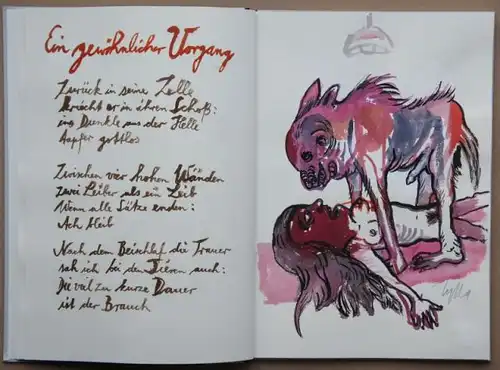 Ein gewöhnlicher Vorgang
Zurück in seine Zelle
Kriecht er in ihren Schoß:
ins Dunkle aus der Helle
tapfer gottlos
Zwischen vier hohen Wänden
zwei Leiber als ein Leib
Wenn alle Sätze enden:
Ach bleib
Nach dem Beischlaf die Trauer
sah ich bei den Tieren auch:
Die viel zu kurze Dauer
ist der Brauch